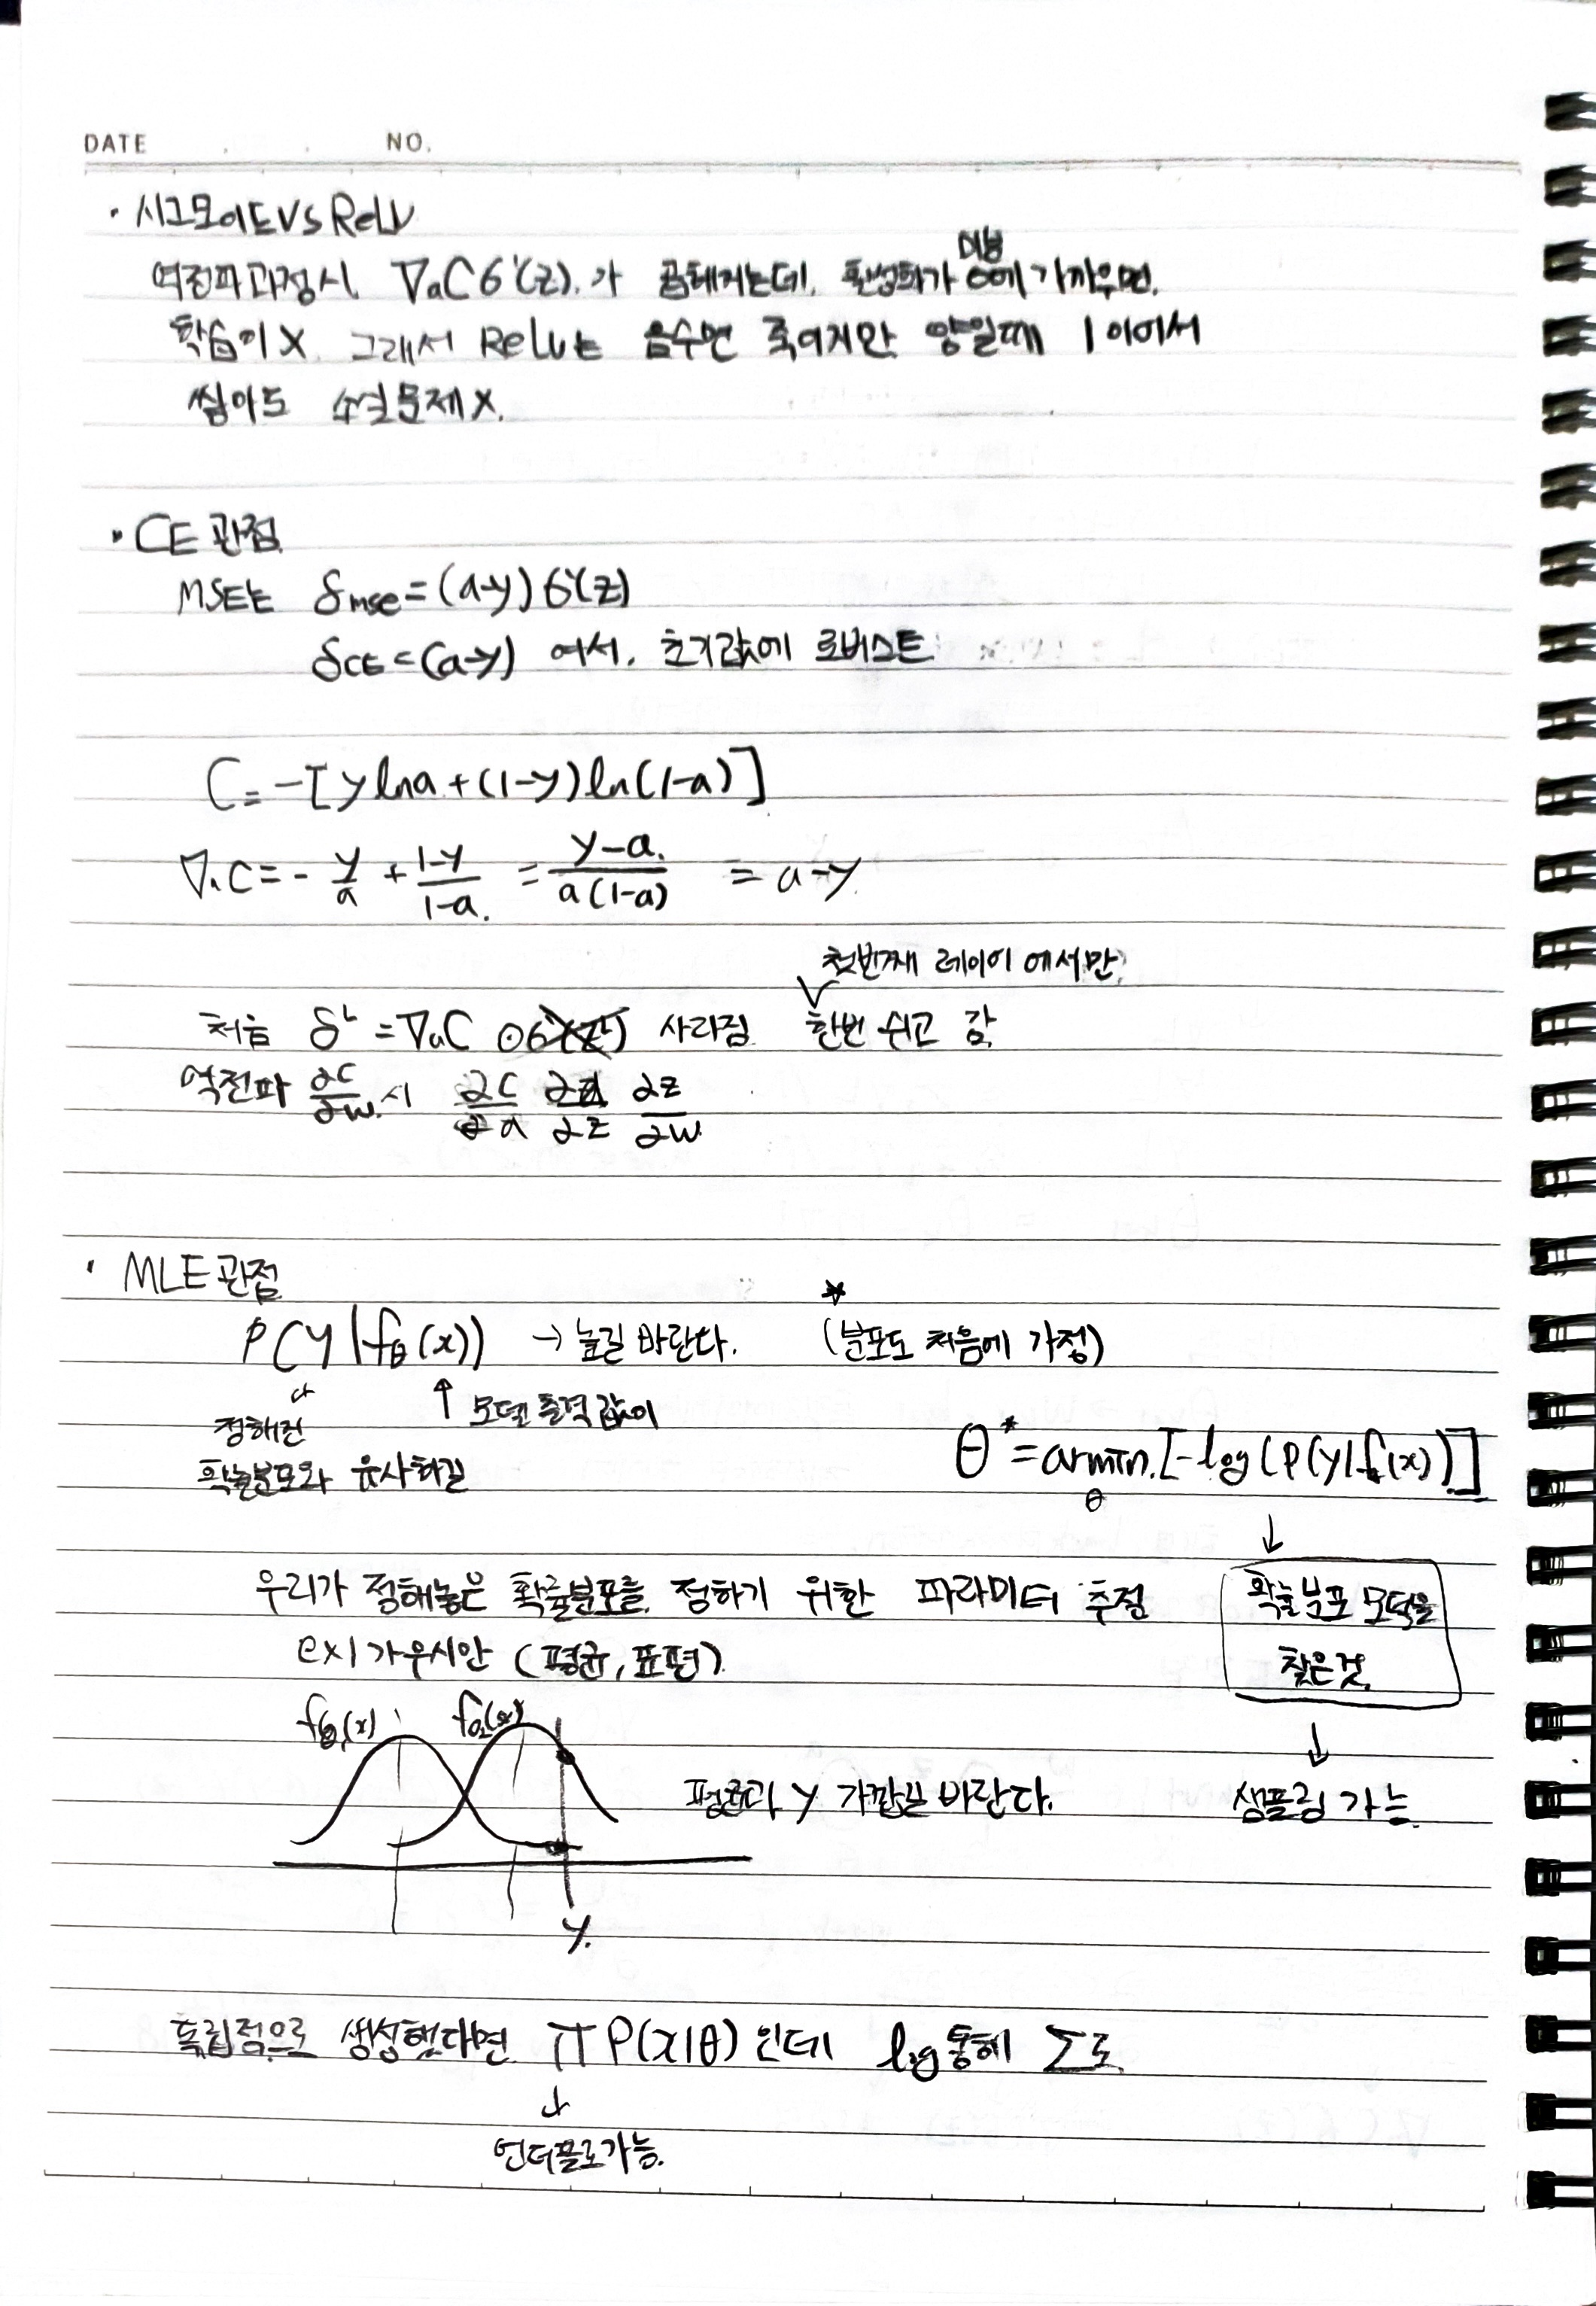 DATE . . NO.
· 시그모이드 VS ReLU
역전파 과정시 ∇aCσ'(z).가 곱해지는데, 활성화가 0에 가까우면.
미분
학습이 X. 그래서 ReLU는 음수면 죽이지만 양일때 1 이어서
쌓아도 소실문제X.
· CE 관점
MSE는 δmse=(a-y)σ'(z)
δCE=(a-y) 여서, 초기값에 로버스트
C=-[y ln a+(1-y)ln(1-a)]
∇aC=- y/a + 1-y/1-a. = y-a./a(1-a) = a-y
첫번째 레이어 에서만
처음 δᴸ =∇aC ⊙σ'(zᴸ) 사라짐 한번 쉬고 감
역전파 ∂C/∂w.시 ∂C/∂a ∂a/∂z ∂z/∂w
· MLE관점
P(y|fθ(x)) → 높길 바란다. (분포도 처음에 가정)
★
↑ 모델 출력값이
정해진
확률분포와 유사하길
θ*=armin.[-log(P(y|f(x))]
θ
↓
우리가 정해놓은 확률분포를 정하기 위한 파라미터 추정
확률분포 모델을
찾은것.
ex) 가우시안 (평균, 표편)
fθ₁(x) fθ₂(x)
↓
평균과 y 가깝길 바란다.
샘플링 가능
y.
독립적으로 생성했다면 π P(x|θ) 인데 log통해 Σ로
↓
언더플로가능.